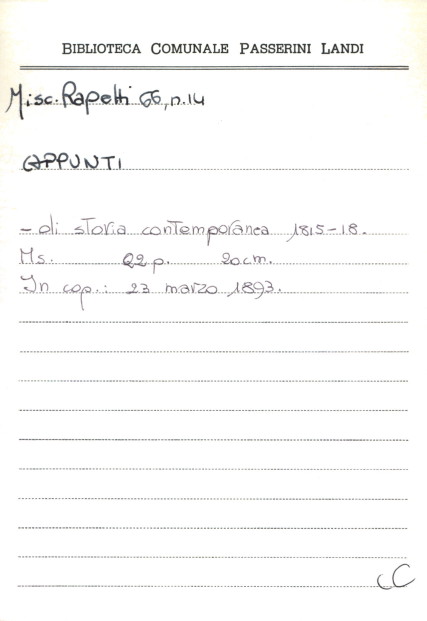 BIBLIOTECA COMUNALE PASSERINI LANDI
Misc. Rapetti 66, n.14
APPUNTI
- di storia contemporanea 1815-18.
Ms. 22 p. 20 cm.
In cop.: 23 marzo 1893.
CC